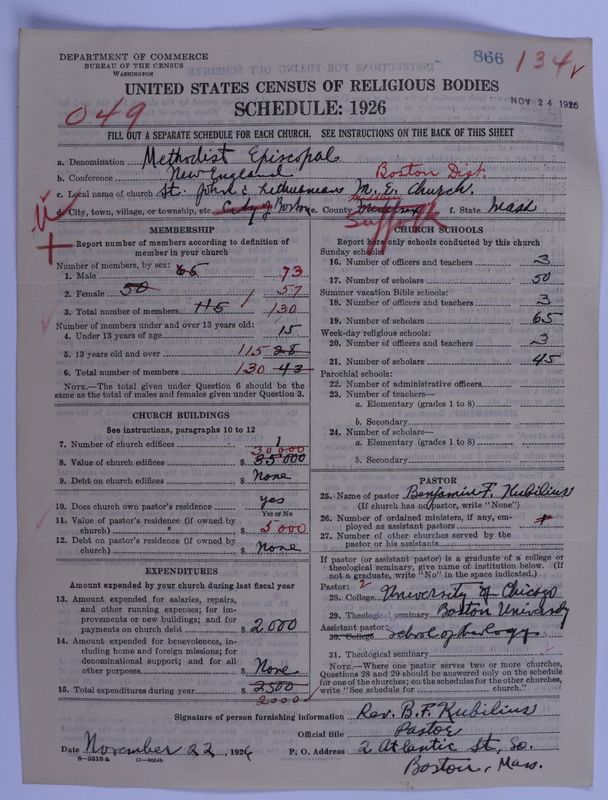 866 134
DEPARTMENT OF COMMERCE
BUREAU OF THE CENSUS
WASHINGTON
UNITED STATES CENSUS OF RELIGIOUS BODIES
SCHEDULE: 1926
NOV 24 1926
049
FILL OUT A SEPARATE SCHEDULE FOR EACH CHURCH. SEE INSTRUCTIONS ON THE BACK OF THIS SHEET
a. Denomination Methodist Episcopal
b. Conference New England Boston Dist.
c. Local name of church St. Johns & Lithuanians M. E. Church.
d. City, town, village, or township, etc. City of Boston e. County Suffolk f. State Mass
MEMBERSHIP
Report number of members according to definition of member in your church
Number of members, by sex:
1. Male 65 73
2. Female 50 57
3. Total number of members 115 130
Number of members under and over 13 years old:
4. Under 13 years of age 15
5. 13 years old and over 115 28
6. Total number of members 130 43
NOTE.—The total given under Question 6 should be the
same as the total of males and females given under Question 3.
CHURCH BUILDINGS
See instructions, paragraphs 10 to 12
7. Number of church edifices 1
30000
8. Value of church edifices $ 35000
9. Debt on church edifices $ None
10. Does church own pastor's residence yes
Yes or No
11. Value of pastor's residence (if owned by
church) $ 5000
12. Debt on pastor's residence (if owned by
church) $ None
EXPENDITURES
Amount expended by your church during last fiscal year
13. Amount expended for salaries, repairs,
and other running expenses; for im-
provements or new buildings; and for
payments on church debt $ 2000
14. Amount expended for benevolences, in-
cluding home and foreign missions; for
denominational support; and for all
other purposes $ None
15. Total expenditures during year $ 2500
2000
CHURCH SCHOOLS
Report here only schools conducted by this church
Sunday schools:
16. Number of officers and teachers 3
17. Number of scholars 50
Summer vacation Bible schools:
18. Number of officers and teachers 3
19. Number of scholars 65
Week-day religious schools:
20. Number of officers and teachers 3
21. Number of scholars 45
Parochial schools:
22. Number of administrative officers
23. Number of teachers—
a. Elementary (grades 1 to 8)
b. Secondary
24. Number of scholars—
a. Elementary (grades 1 to 8)
b. Secondary
PASTOR
25. Name of pastor Benjamin F. Kubilius
(If church has no pastor, write "None")
26. Number of ordained ministers, if any, em-
ployed as assistant pastors
27. Number of other churches served by the
pastor or his assistants
If pastor (or assistant pastor) is a graduate of a college or
theological seminary, give name of institution below. (If
not a graduate, write "No" in the space indicated.)
Pastor: 2
28. College University of Chicago
29. Theological seminary Boston University
Assistant pastor:
30. College School of Theology
31. Theological seminary
NOTE.—Where one pastor serves two or more churches,
Questions 28 and 29 should be answered only on the schedule
for one of the churches; on the schedules for the other churches,
write "See schedule for church."
Signature of person furnishing information Rev. B. F. Kubilius
Official title Pastor
Date November 22, 1926 P. O. Address 2 Atlantic St, So.
8—5518a 11—9064b
Boston, Mass.